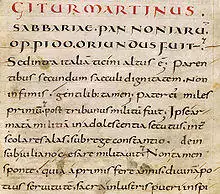 GITUR MARTINUS
SABBARIAE. PANNONIARU
OPPIDO. ORIUNDUS FUIT.
Sed intra italia ticini altus e. Paren
tibus secundum saeculi dignitatem. Non
infimis. gentilib; tamen. Pater ei miles
primu. post tribunus militu fuit. Ipse ar
mata militia in adolescentia secutus. int
scolares alas. sub rege constantio. dein
sub iuliano caesare militauit. Non tamen
sponte. quia a primis fere annis diuinapo
tius seruitute sacra inlustris pueri inspi